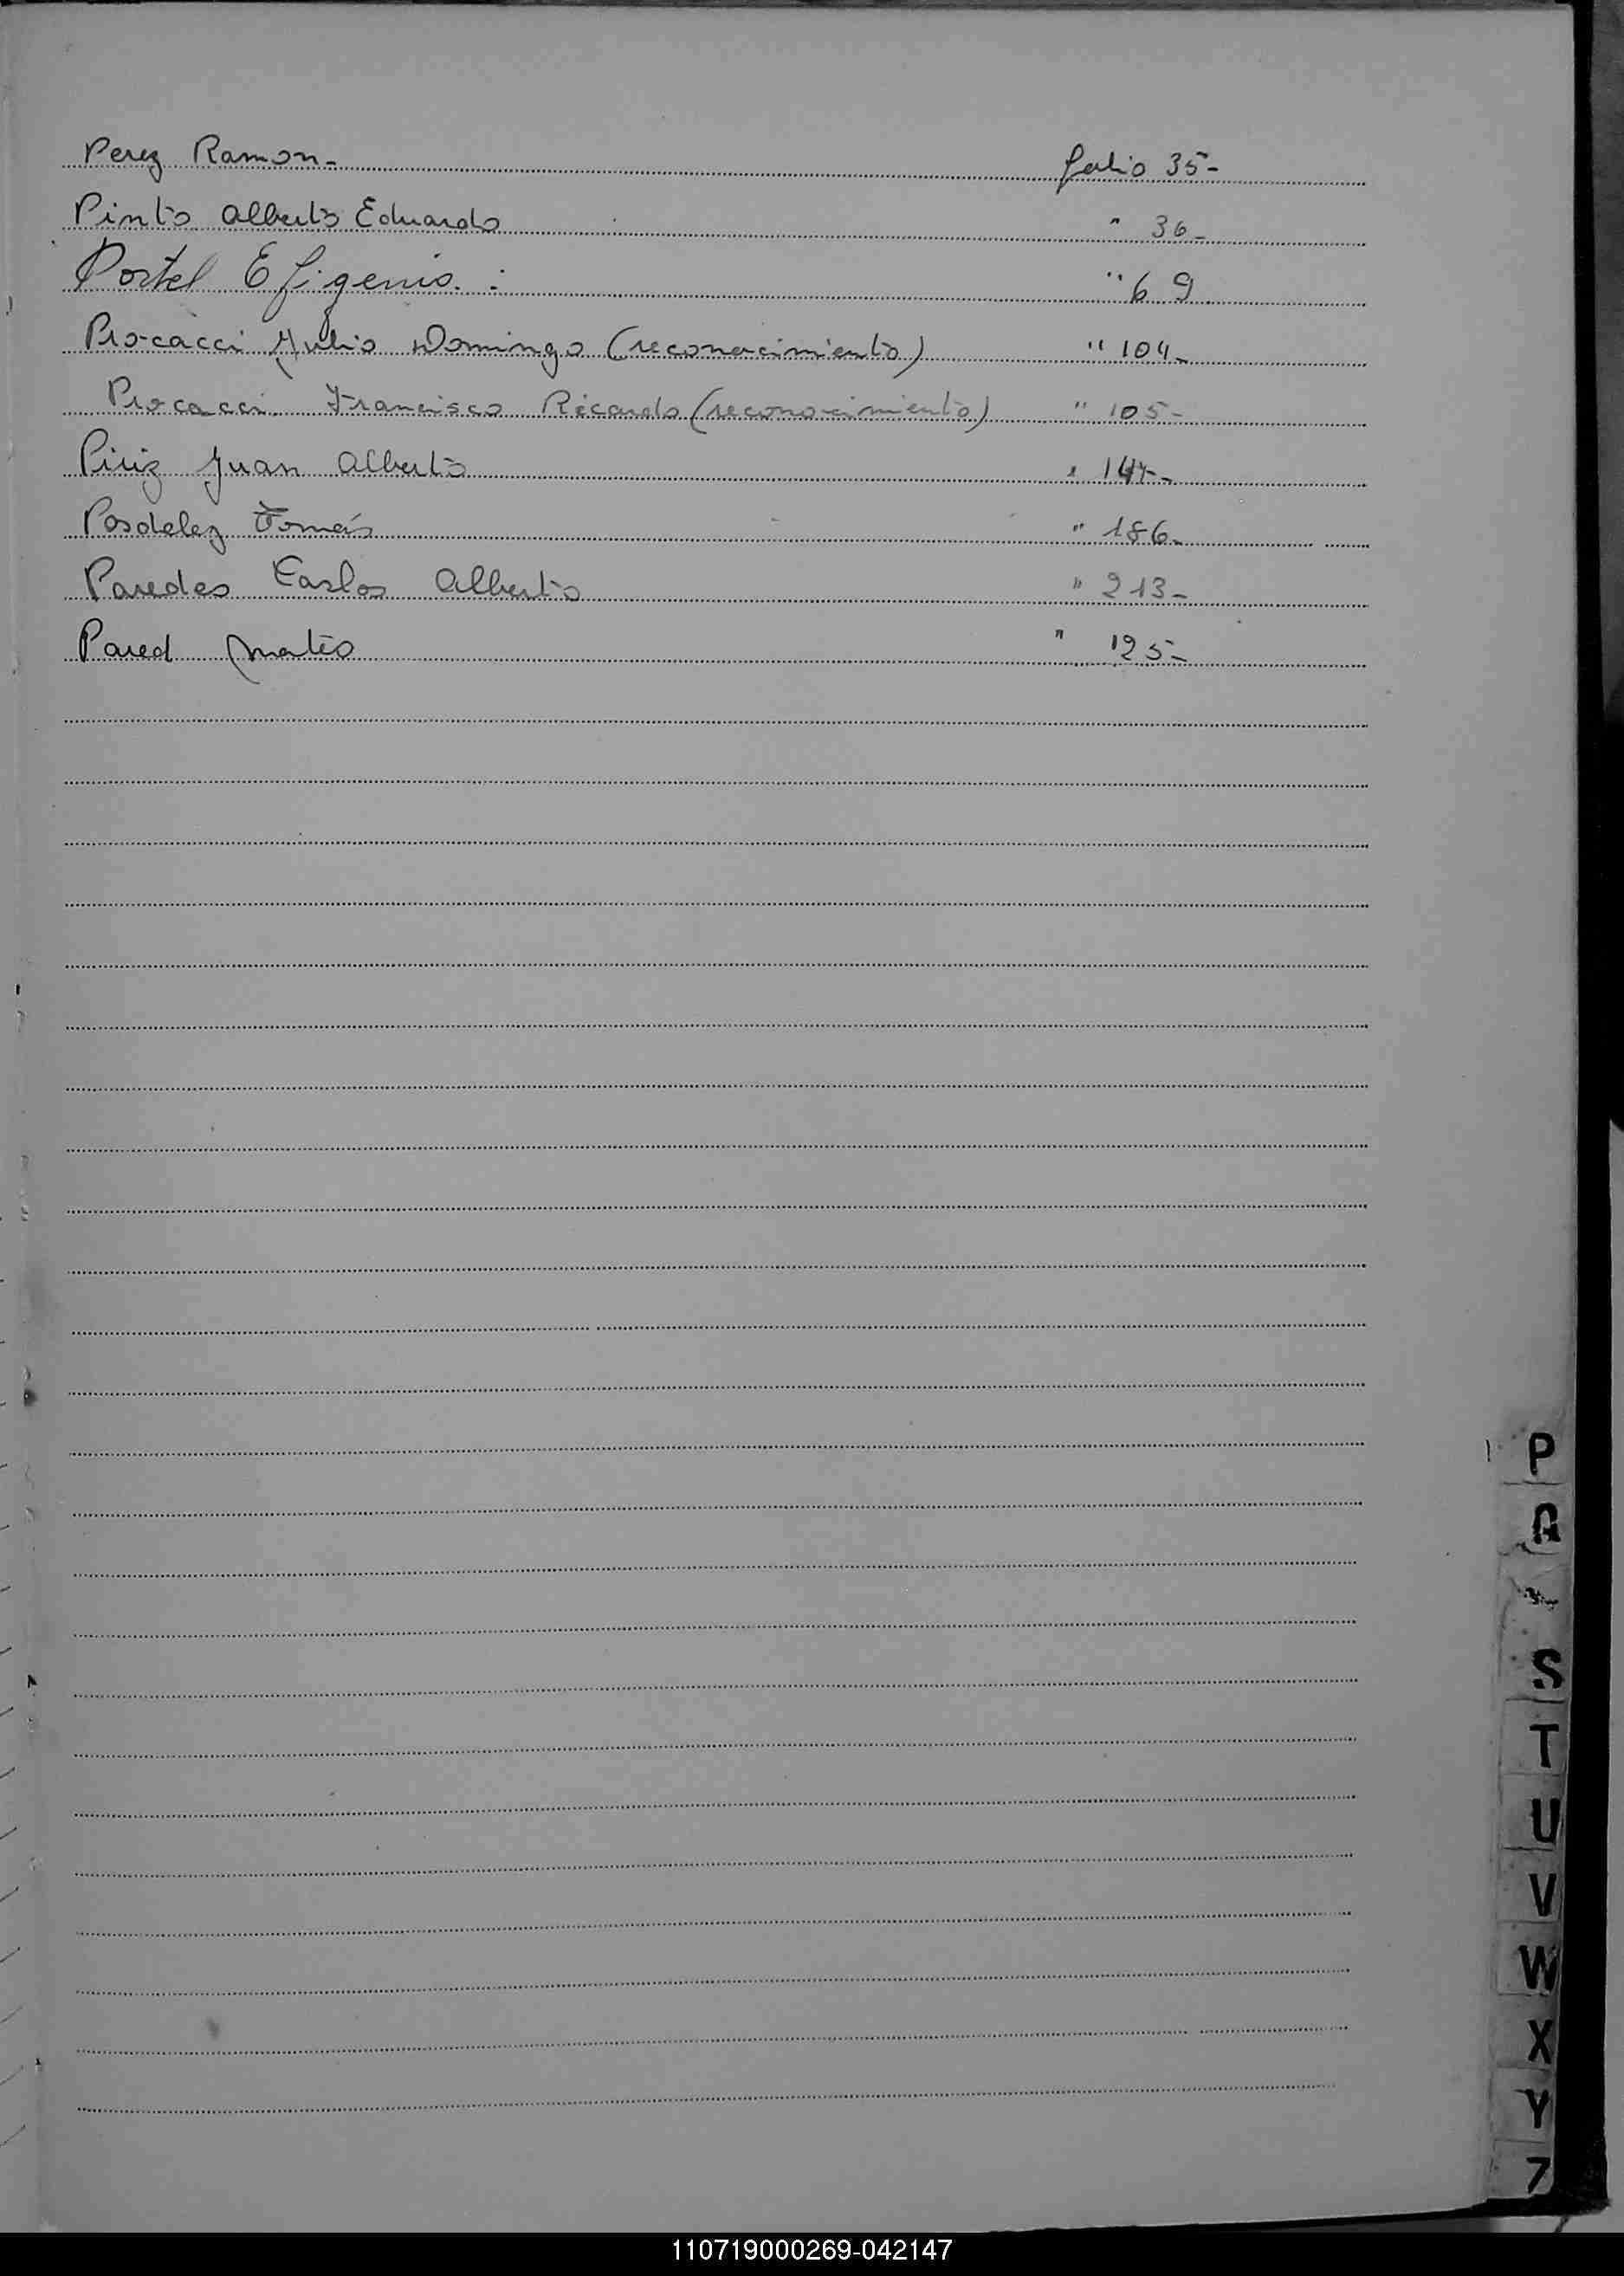 Perez Ramon- folio 35-
Pinto Alberto Eduardo " 36-
Portel Efigenio. : " 69
Procacci Julio Domingo (reconocimiento) " 104-
Procacci Francisco Ricardo (reconocimiento) " 105-
Piriz Juan Alberto " 144-
Posdeley Tomás " 186-
Paredes Carlos Alberto " 213-
Pared Mateo " 125-
P
Q
S
T
U
V
W
X
Y
Z
110719000269-042147